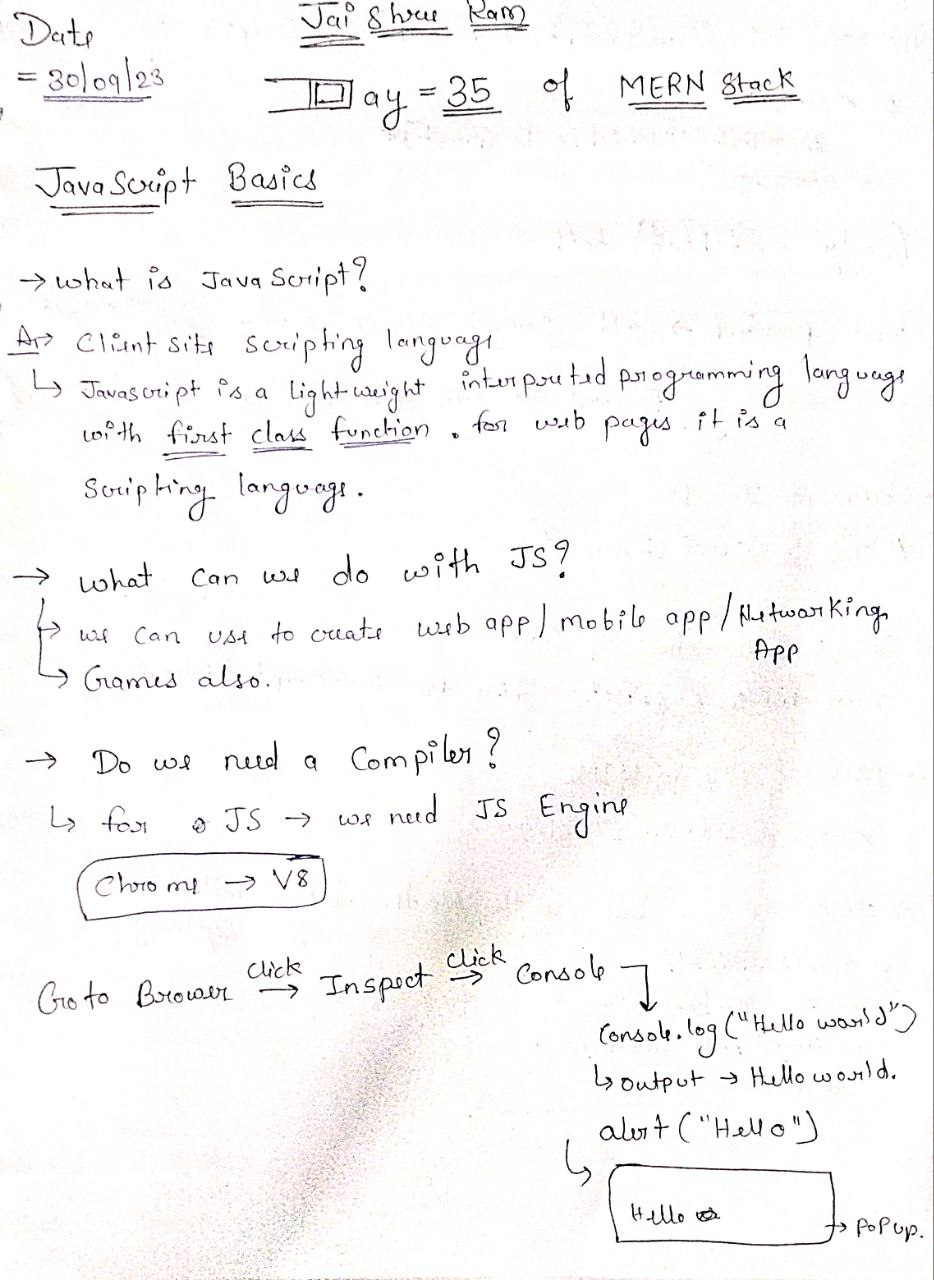 Jai Shree Ram
Date
= 30/09/23
Day = 35 of MERN Stack
JavaScript Basics
→ what is JavaScript?
A→ Client site scripting language
↳ Javascript is a lightweight interpreted programming language
with first class function. for web pages it is a
Scripting language.
→ what can we do with JS?
↳ we can use to create web app / mobile app / Networking
App
↳ Games also.
→ Do we need a Compiler?
↳ for JS → we need JS Engine
Chrome → V8
Go to Brower click → Inspect click → Console
Console.log ("Hello world")
↳ output → Hello world.
alert ("Hello")
↳ Hello → PoPup.